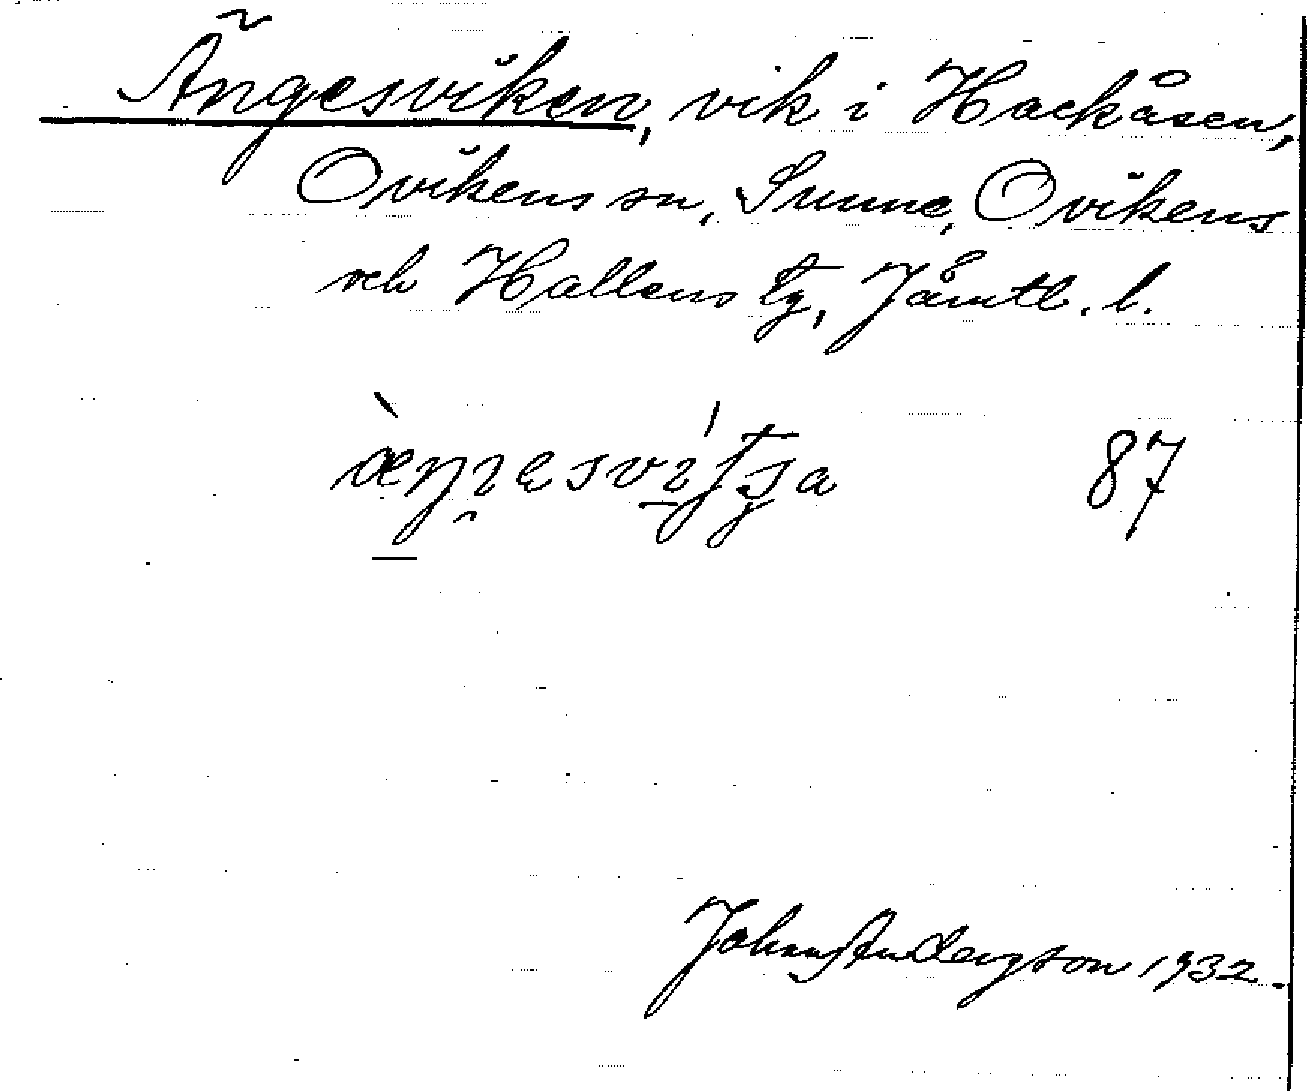 Ängesviken, vik i Hackåsen,
Ovikens sn, Sunne, Ovikens
och Hallens tg, Jämtl. l.
87
John Anderzson 1932